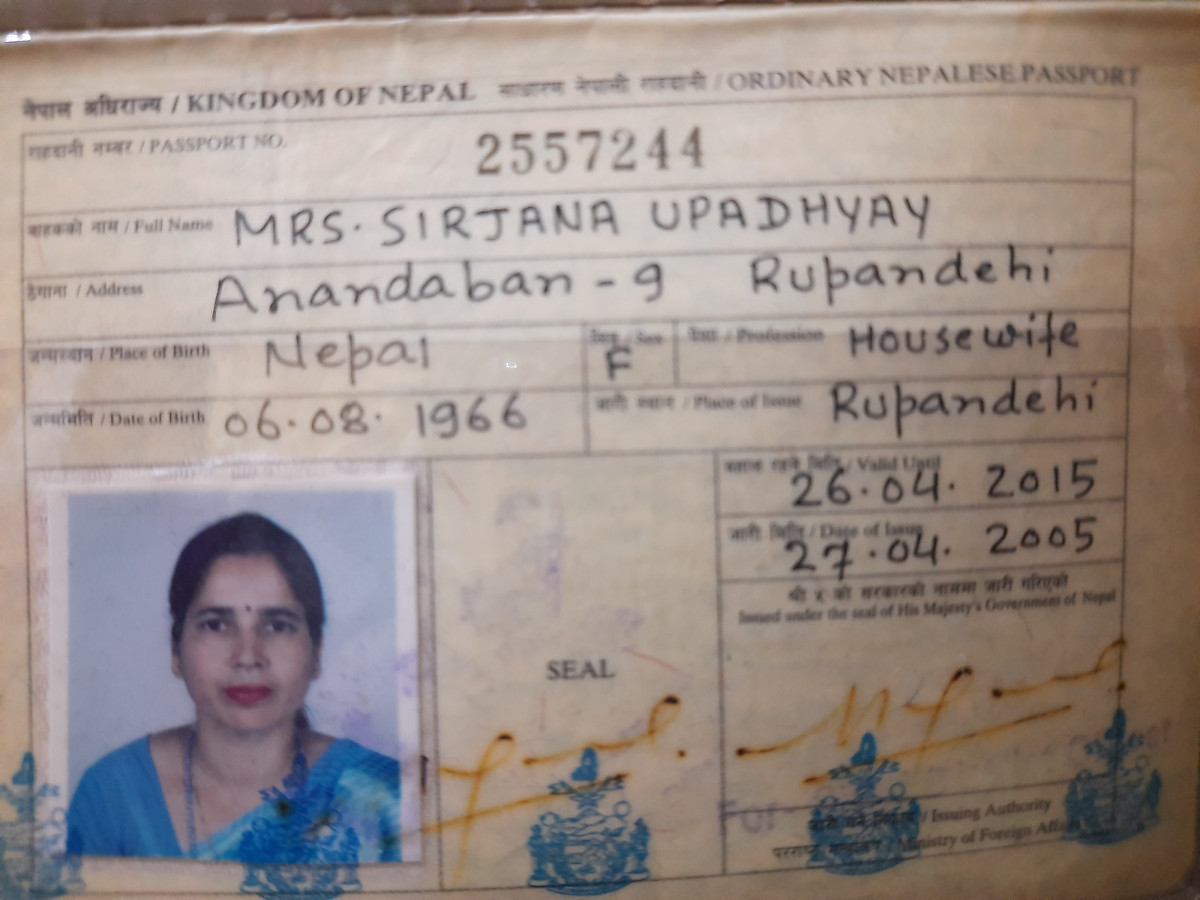 नेपाल अधिराज्य / KINGDOM OF NEPAL साधारण नेपाली राहदानी / ORDINARY NEPALESE PASSPORT
राहदानी नम्बर / PASSPORT NO. 2557244
वाहकको नाम / Full Name MRS. SIRJANA UPADHYAY
ठेगाना / Address Anandaban - 9 Rupandehi
जन्मस्थान / Place of Birth Nepal लिङ्ग / Sex F पेशा / Profession Housewife
जन्ममिति / Date of Birth 06.08. 1966 जारी स्थान / Place of Issue Rupandehi
बहाल रहने मिति / Valid Until 26.04. 2015
जारी मिति / Date of Issue 27.04. 2005
श्री ५ को सरकारको नाममा जारी गरिएको
Issued under the seal of His Majesty's Government of Nepal
SEAL
For
/ Issuing Authority
परराष्ट्र / Ministry of Foreign